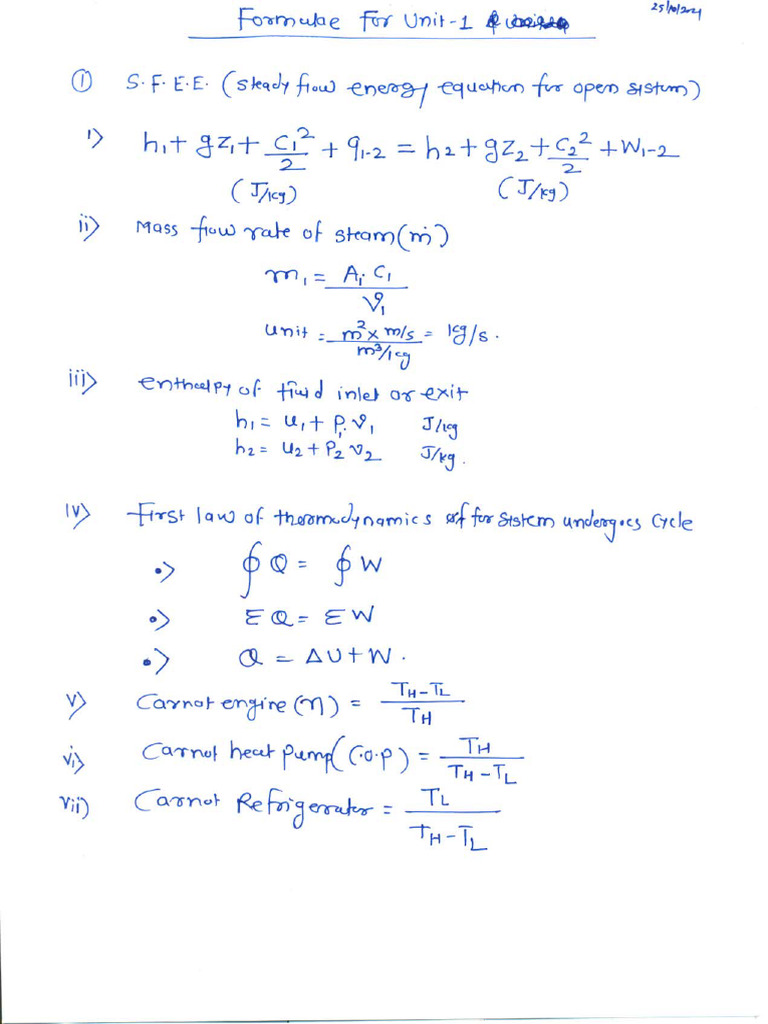 25/10/2021
Formulae for Unit-1
① S.F.E.E. (steady flow energy equation for open sistem)
i) h₁ + gz₁ + C₁²/2 + q₁₋₂ = h₂ + gz₂ + C₂²/2 + W₁₋₂
(J/kg) (J/kg)
ii) Mass flow rate of steam (ṁ)
m₁ = A₁ C₁ / v₁
unit = m² x m/s / m³/kg = kg/s.
iii) enthalpy of fluid inlet or exit
h₁ = u₁ + P₁ v₁ J/kg
h₂ = u₂ + P₂ v₂ J/kg.
iv) First law of thermodynamics for sistem undergoes cycle
•) ∮ Q = ∮ W
•) Σ Q = Σ W
•) Q = ΔU + W.
v) Carnot engine (η) = TH - TL / TH
vi) Carnot heat pump (C.O.P) = TH / TH - TL
vii) Carnot Refrigerator = TL / TH - TL